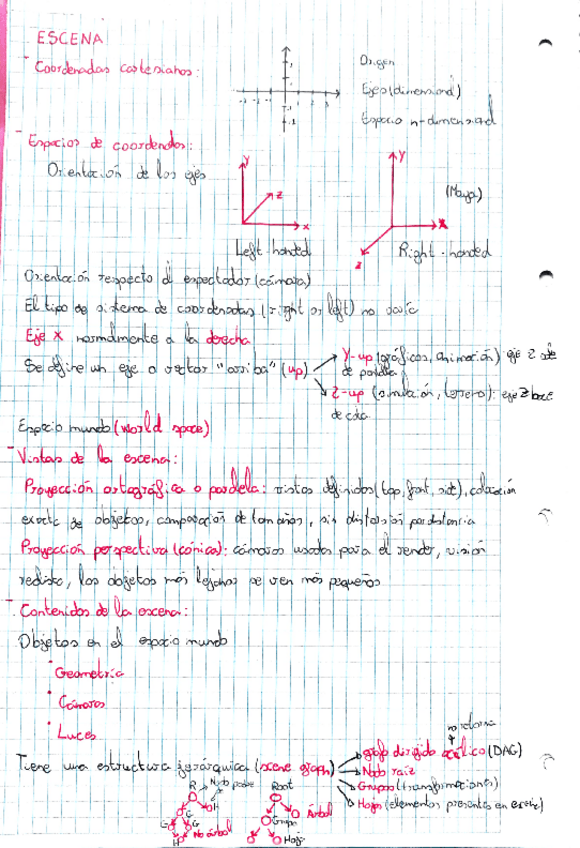 ESCENA
- Coordenadas cartesianas:
Origen
Ejes (dimensional)
Espacio n-dimensional
- Espacios de coordenadas:
Orientación de los ejes
Y
Z
X
Left-handed
Y
X
Z
(Maya)
Right-handed
Orientación respecto al espectador (cámara)
El tipo de sistema de coordenadas (right or left) no
Eje X normalmente a la derecha
Se define un eje o vector "arriba" (up)
Y-up (gráficos, animación) eje Z sale
de pantalla
Z-up (simulación, terreno): eje Z hace
de
Espacio mundo (world space)
- Vistas de la escena:
Proyección ortográfica o paralela: vistas definidas (top, front, side), colocación
exacta de objetos, comparación de tamaños, sin distorsión por distancia
Proyección perspectiva (cónica): cámaras usadas para el render, visión
realista, los objetos más lejanos se ven más pequeños
- Contenidos de la escena:
Objetos en el espacio mundo
· Geometría
· Cámaras
· Luces
no retorna
Tiene una estructura jerárquica (scene graph)
grafo dirigido acíclico (DAG)
Nodo raíz
Grupos (transformaciones)
Hojas (elementos presentes en escena)
R
Nodo padre
H
G
G
G
H
No árbol
Root
Árbol
Grupo
Hoja